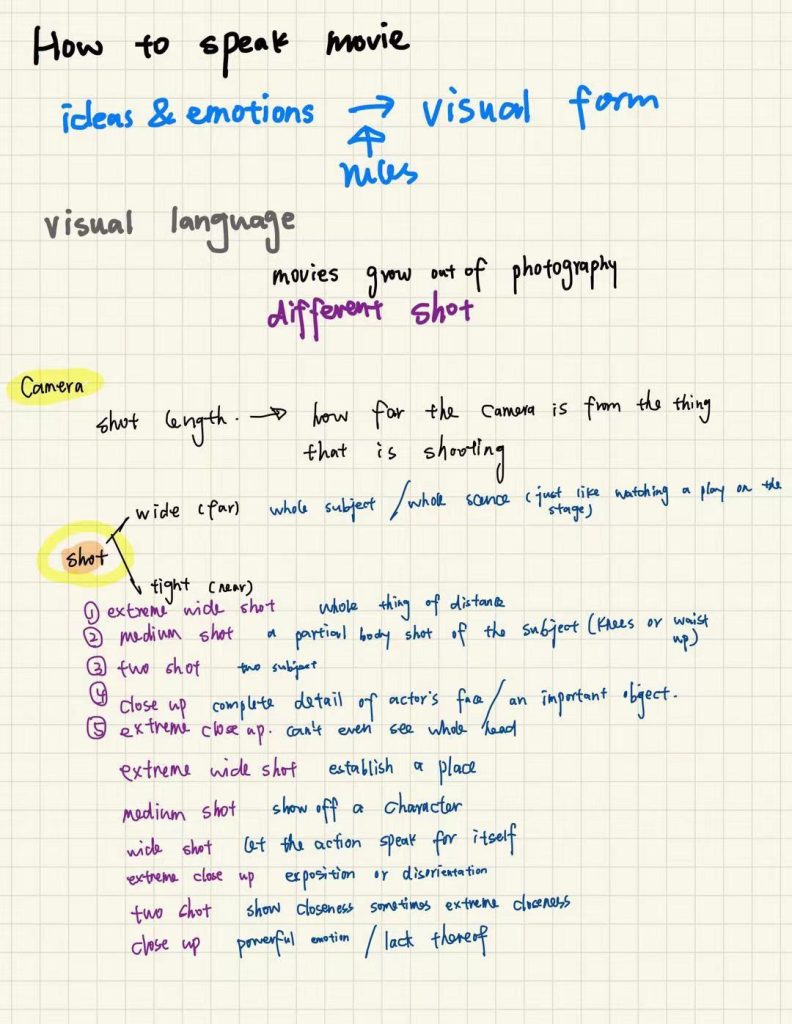 How to speak movie
ideas & emotions → visual form
↑
rules
visual language
movies grow out of photography
different shot
Camera
shot length. → how far the camera is from the thing
that is shooting
wide (far) whole subject / whole scence (just like watching a play on the
stage)
shot
tight (near)
① extreme wide shot whole thing of distance
② medium shot a partial body shot of the subject (knees or waist
up)
③ two shot two subject
④ close up complete detail of actor's face / an important object.
⑤ extreme close up. can't even see whole head
extreme wide shot establish a place
medium shot show off a character
wide shot let the action speak for itself
extreme close up exposition or disorientation
two shot show closeness sometimes extreme closeness
close up powerful emotion / lack thereof